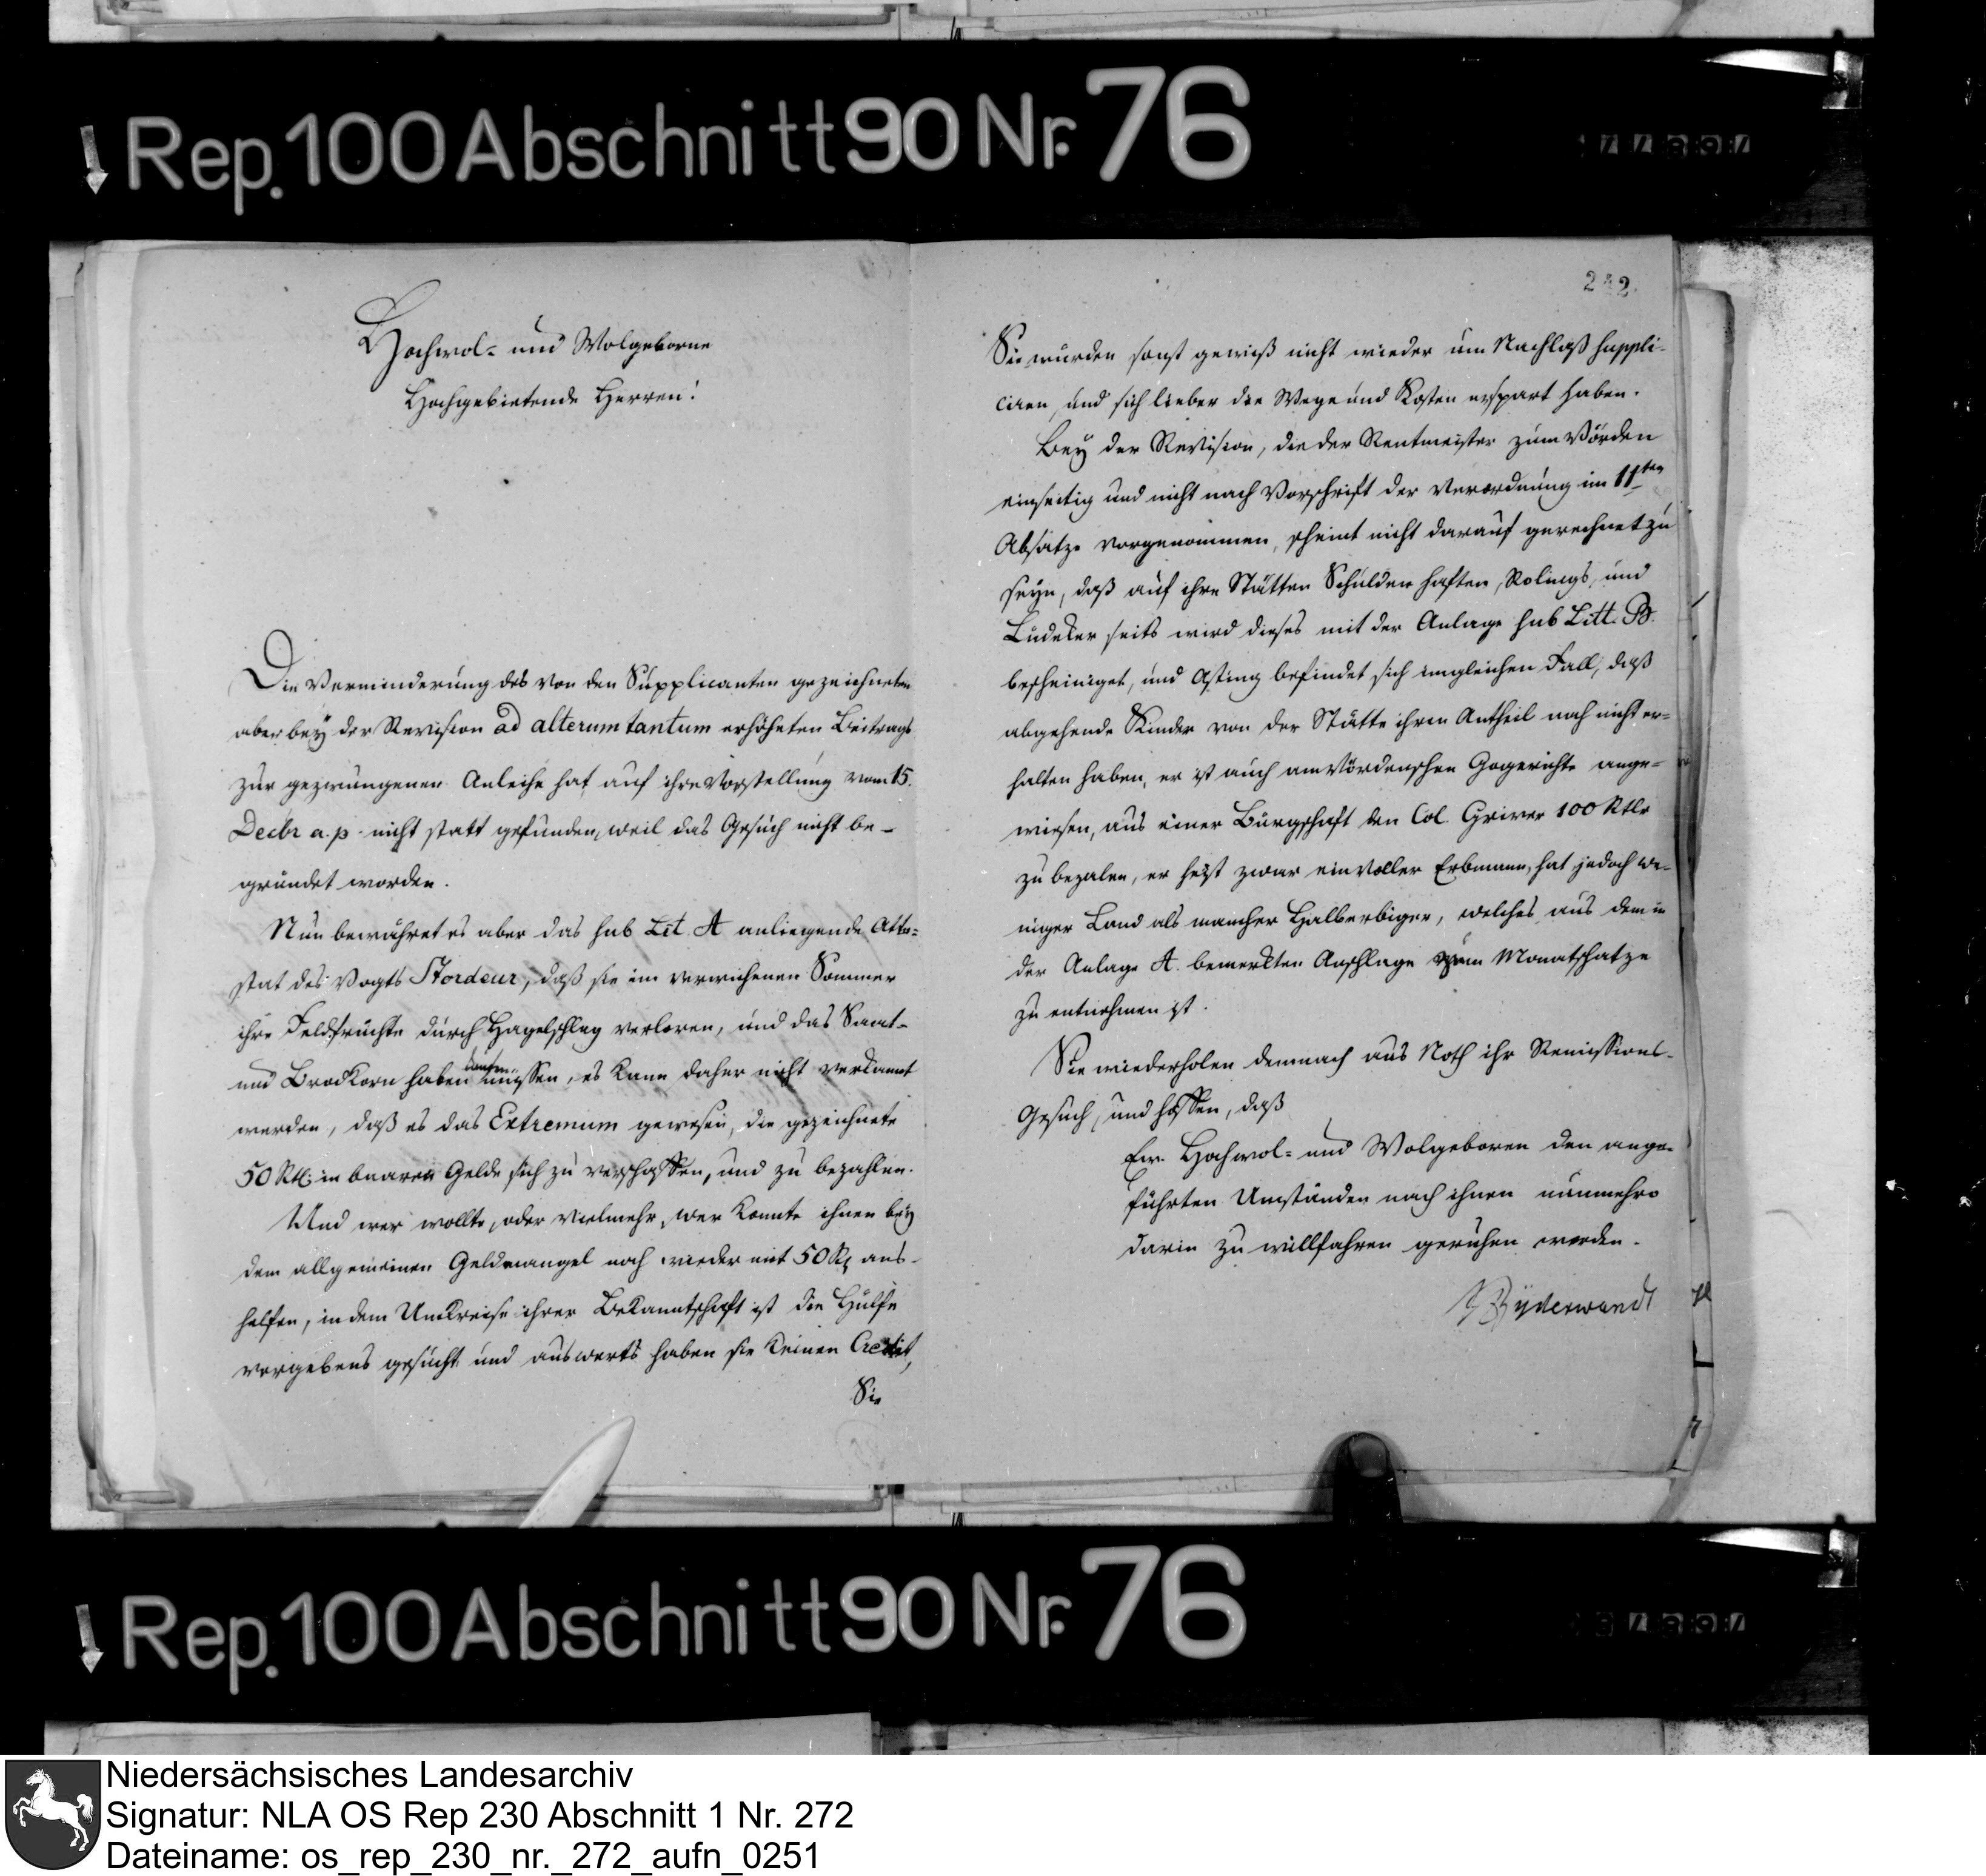 Rep. 100 Abschnitt 90 Nr. 76
Hochwol- und Wolgeborne
Hochgebietende Herren!
Die Verminderung des von den Supplicanten gezeichneten
aber bey der Revision ad alterum tantum erhöheten Beitrags
zur gezwungenen Anleihe hat auf ihre Vorstellung vom 15.
Decbr a. p. nicht statt gefunden, weil das Gesuch nicht be-
gründet worden.
Nun bewähret es aber das sub Lit. A anliegende Atte-
stat des Vogts Stordeur, daß sie im verwichenen Sommer
ihre Feldfrüchte durch Hagelschlag verloren, und das Saat-
und Brodkorn haben kaufen müssen, es kann daher nicht verkannt
werden, daß es das Extremum gewesen, die gezeichnete
50 Rtl. in baaren Gelde sich zu verschaffen, und zu bezahlen.
Und wer wollte, oder vielmehr, wer konnte ihnen bey
dem allgemeinen Geldmangel noch wieder mit 50 R aus-
helfen, in dem Umkreise ihrer Bekanntschaft ist die Hülfe
vergebens gesucht und auswerts haben sie keinen Credit,
Sie
242.
Sie würden sonst gewiß nicht wieder um Nachlaß suppli-
ciren, und sich lieber die Wege und Kosten erspart haben.
Bey der Revision, die der Rentmeister zum Vörden
einseitig und nicht nach Vorschrift der Verordnung im 11ten
Absatze vorgenommen, scheint nicht darauf gerechnet zu
seyn, daß auf ihre Stätten Schulden haften, Rolings, und
Lüdeker seits wird dieses mit der Anlage sub Litt. B.
bescheiniget, und Asting befindet sich im gleichen Fall, daß
abgehende Kinder von der Stätte ihren Antheil noch nicht er-
halten haben, er ist auch am Vördenschen Gogerichte ange-
wiesen, aus einer Bürgschaft den Col. Griver 100 Rtlr
zu bezalen, er heist zwar ein voller Erbmann, hat jedoch we-
niger Land als mancher Halberbiger, welches aus dem in
der Anlage A. bemerkten Anschlage zum Monatschatze
zu entnehmen ist.
Sie wiederholen demnach aus Noth ihr Remissions-
Gesuch, und hoffen, daß
Ew. Hochwol- und Wolgeboren den ange-
führten Umständen nach ihnen nunmehro
darin zu willfahren geruhen werden.
Rep. 100 Abschnitt 90 Nr. 76
Niedersächsisches Landesarchiv
Signatur: NLA OS Rep 230 Abschnitt 1 Nr. 272
Dateiname: os_rep_230_nr._272_aufn_0251